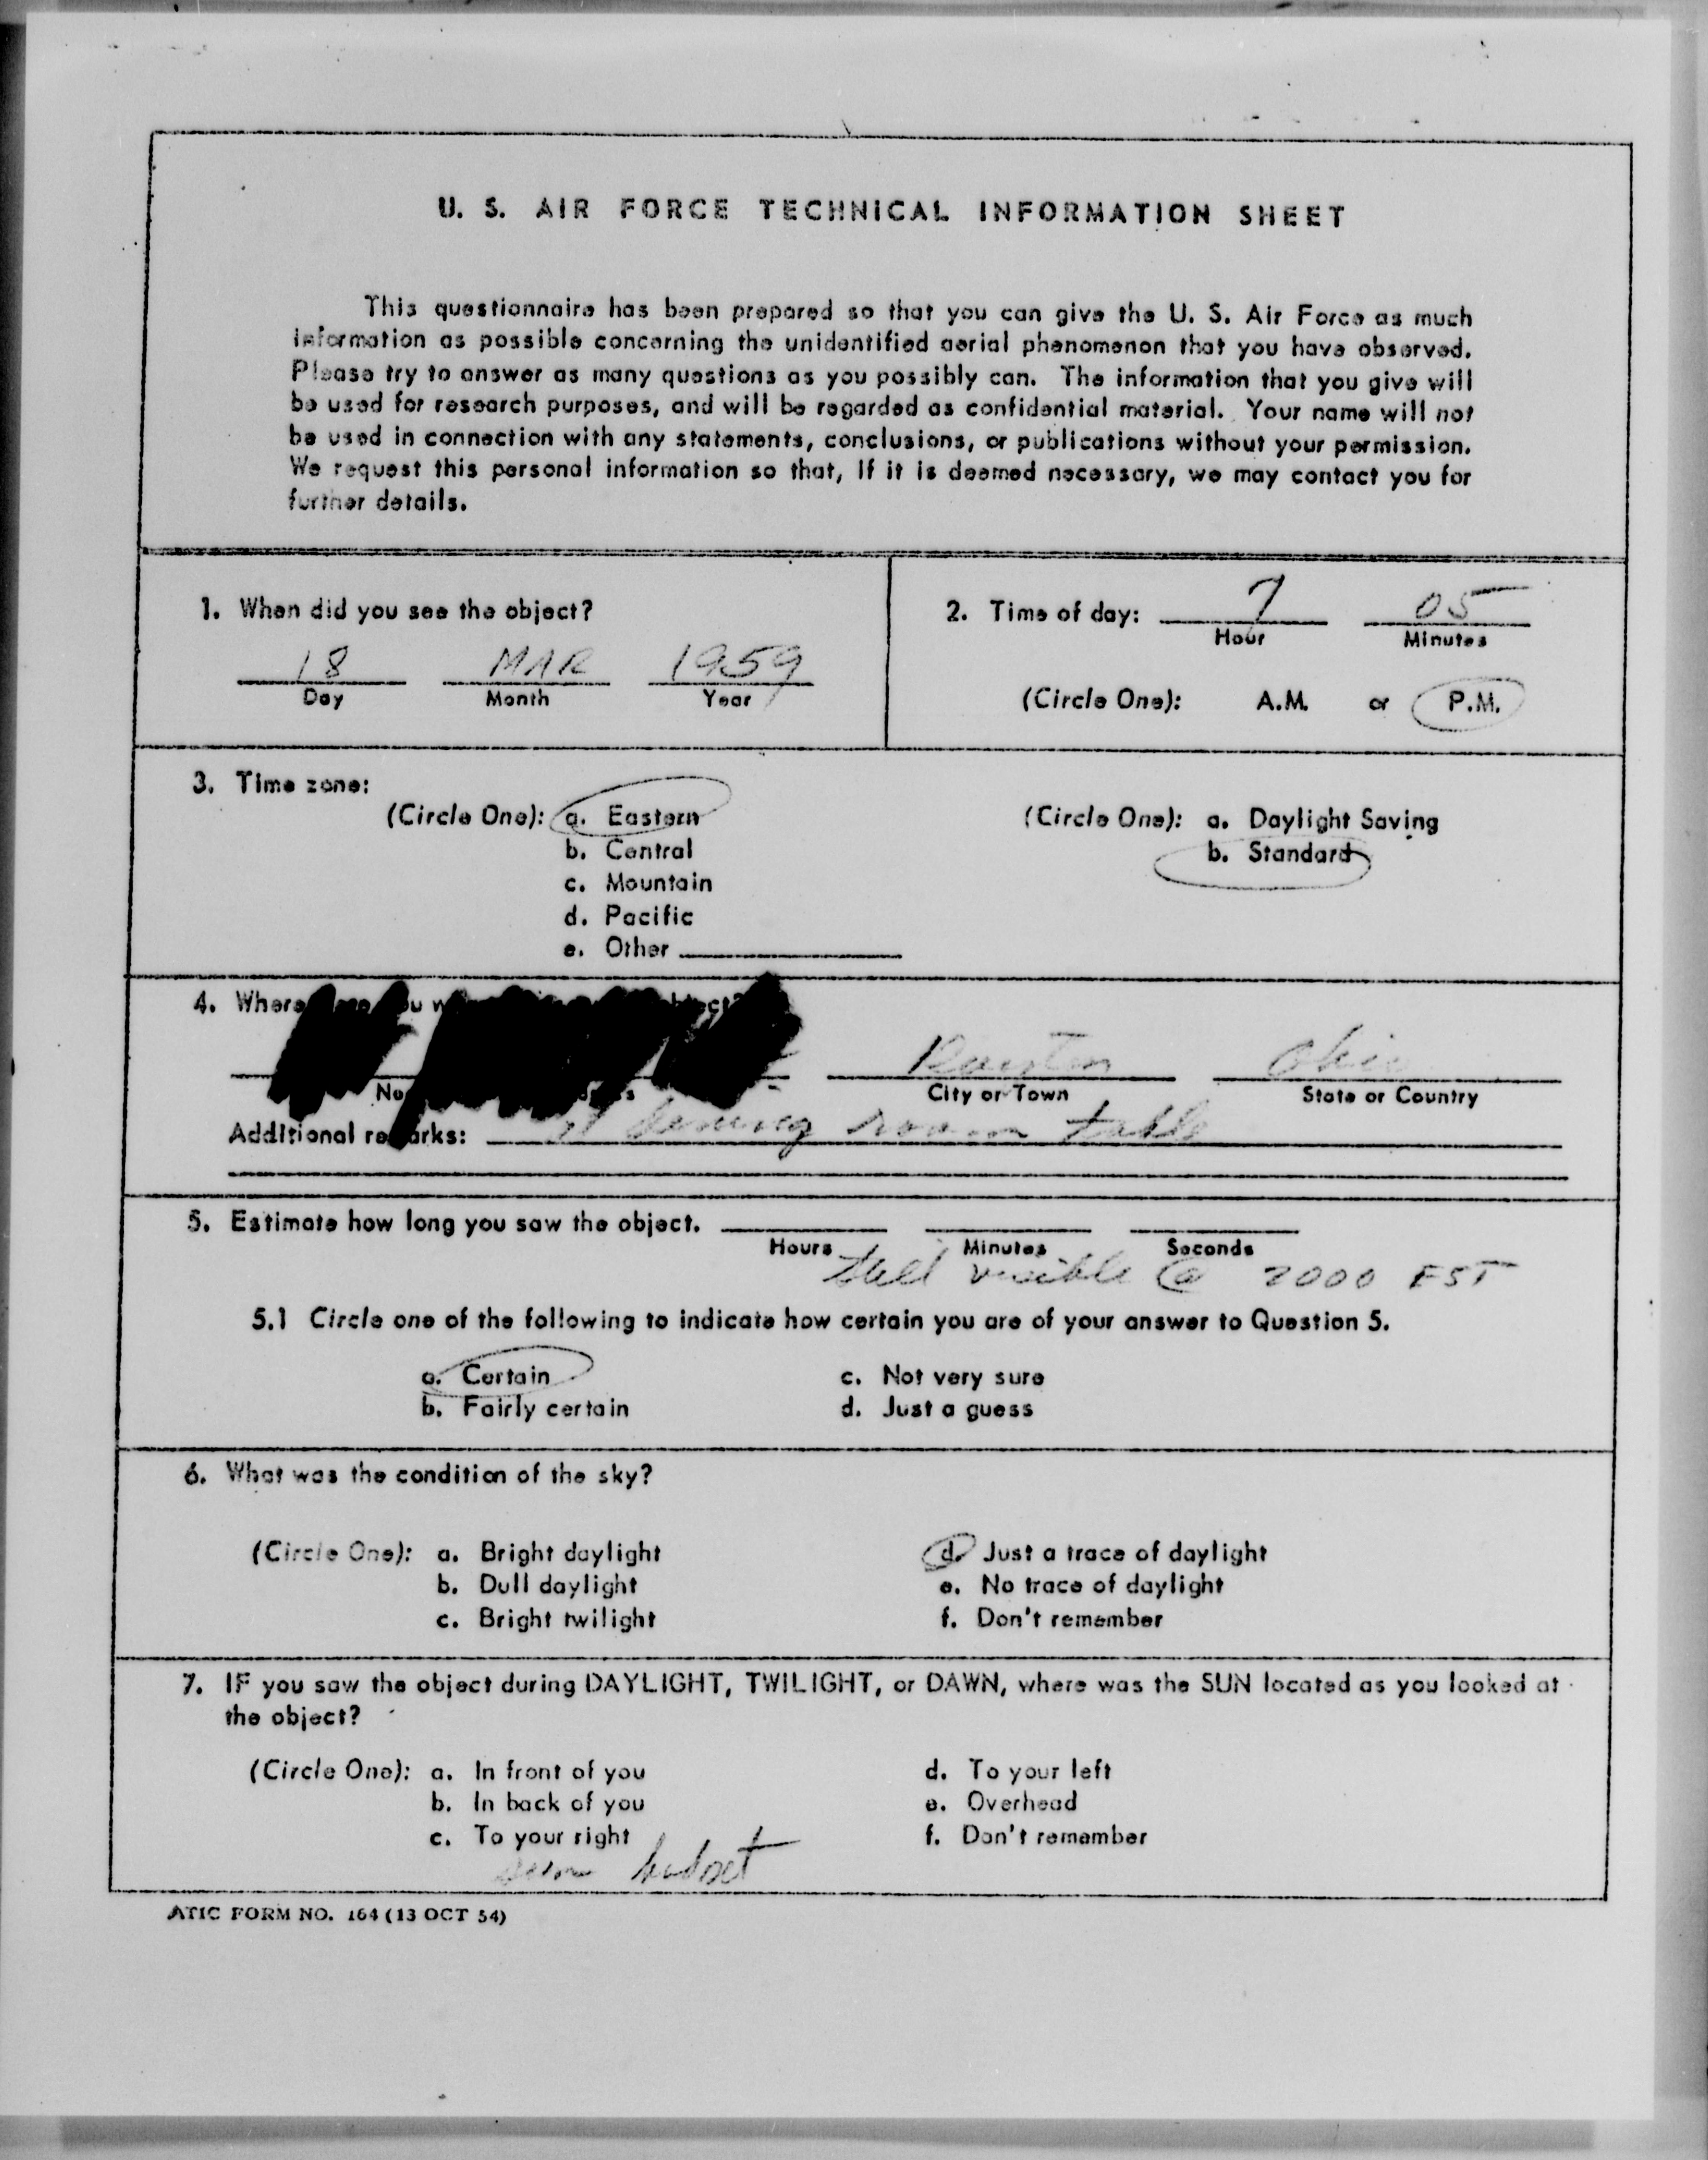 U. S. AIR FORCE TECHNICAL INFORMATION SHEET
This questionnaire has been prepared so that you can give the U. S. Air Force as much
information as possible concerning the unidentified aerial phenomenon that you have observed.
Please try to answer as many questions as you possibly can. The information that you give will
be used for research purposes, and will be regarded as confidential material. Your name will not
be used in connection with any statements, conclusions, or publications without your permission.
We request this personal information so that, if it is deemed necessary, we may contact you for
further details.
1. When did you see the object?
18 MAR 1959
Day Month Year
2. Time of day: 7 05
Hour Minutes
(Circle One): A.M. or P.M.
3. Time zone:
(Circle One): a. Eastern
b. Central
c. Mountain
d. Pacific
e. Other
(Circle One): a. Daylight Saving
b. Standard
4. Where
Dayton Ohio
City or Town State or Country
Additional remarks: room table
5. Estimate how long you saw the object.
Hours Minutes Seconds
Still visible @ 2000 EST
5.1 Circle one of the following to indicate how certain you are of your answer to Question 5.
a. Certain
b. Fairly certain
c. Not very sure
d. Just a guess
6. What was the condition of the sky?
(Circle One): a. Bright daylight
b. Dull daylight
c. Bright twilight
d. Just a trace of daylight
e. No trace of daylight
f. Don't remember
7. IF you saw the object during DAYLIGHT, TWILIGHT, or DAWN, where was the SUN located as you looked at
the object?
(Circle One): a. In front of you
b. In back of you
c. To your right
d. To your left
e. Overhead
f. Don't remember
sun
ATIC FORM NO. 164 (13 OCT 54)